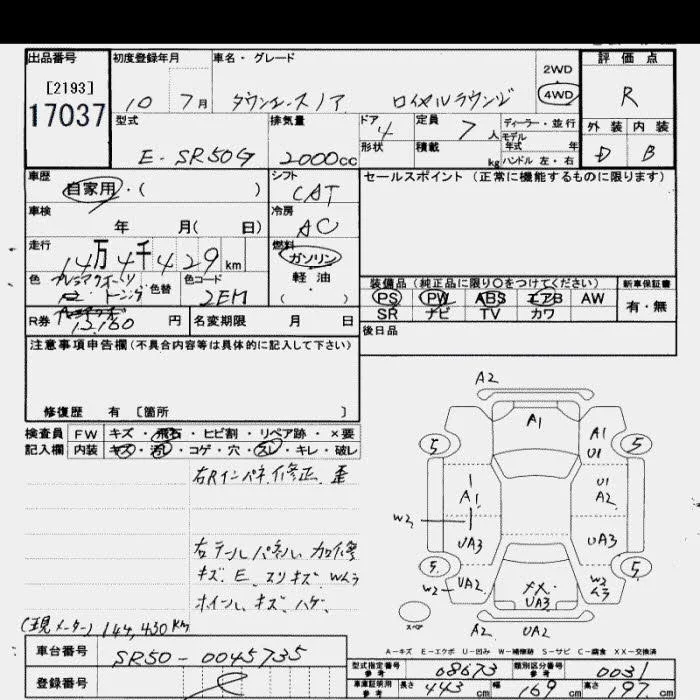 出品番号 初度登録年月 車名・グレード 2WD 評価点
[2193] 4WD
17037 10 7月 タウンエースノア ロイヤルラウンジ R
型式 排気量 ドア 4 定員 7人 ディーラー・並行 外装 内装
モデル年式 年
E-SR50G 2000cc 形状 積載 kg ハンドル 左・右 D B
車歴 シフト セールスポイント (正常に機能するものに限ります)
自家用・( ) CAT
車検 冷房
年 月( 日) AC
走行 燃料
14万4千429km ガソリン
色 色替 色コード 軽・油
トーニング 2EM ( )
装備品(純正品に限り○をつけてください) 新車保証書
PS PW ABS エアB AW 有・無
R券 12,160円 名変期限 月 日 SR ナビ TV カワ
注意事項申告欄(不具合内容等は具体的に記入して下さい) 後日品
修復歴 有 [箇所 ]
検査員 FW キズ・飛石・ヒビ割・リペア跡・×要
記入欄 内装 キズ・汚レ・コゲ・穴・スレ・キレ・破レ
右Rインパネ、修正、歪
右テールパネル、加修
キズ、E、スリキズ、Wムラ
ホイール、キズ、ハゲ、
(現メーター) 144,430km
A2
A1
5 A1 5
U1
U1
A1 A2
W2
UA3 UA3
5 5
W2 UA2 XX UA3 W3 ムラ
スペア A2 UA2
A-キズ E-エクボ U-凹み W-補修跡 S-サビ C-腐食 XX-交換済
車台番号 SR50-0045735
型式指定番号 参考 08673 類別区分番号 参考 0031
登録番号
車庫証明用 参考 長さ 443cm 幅 169cm 高さ 197cm